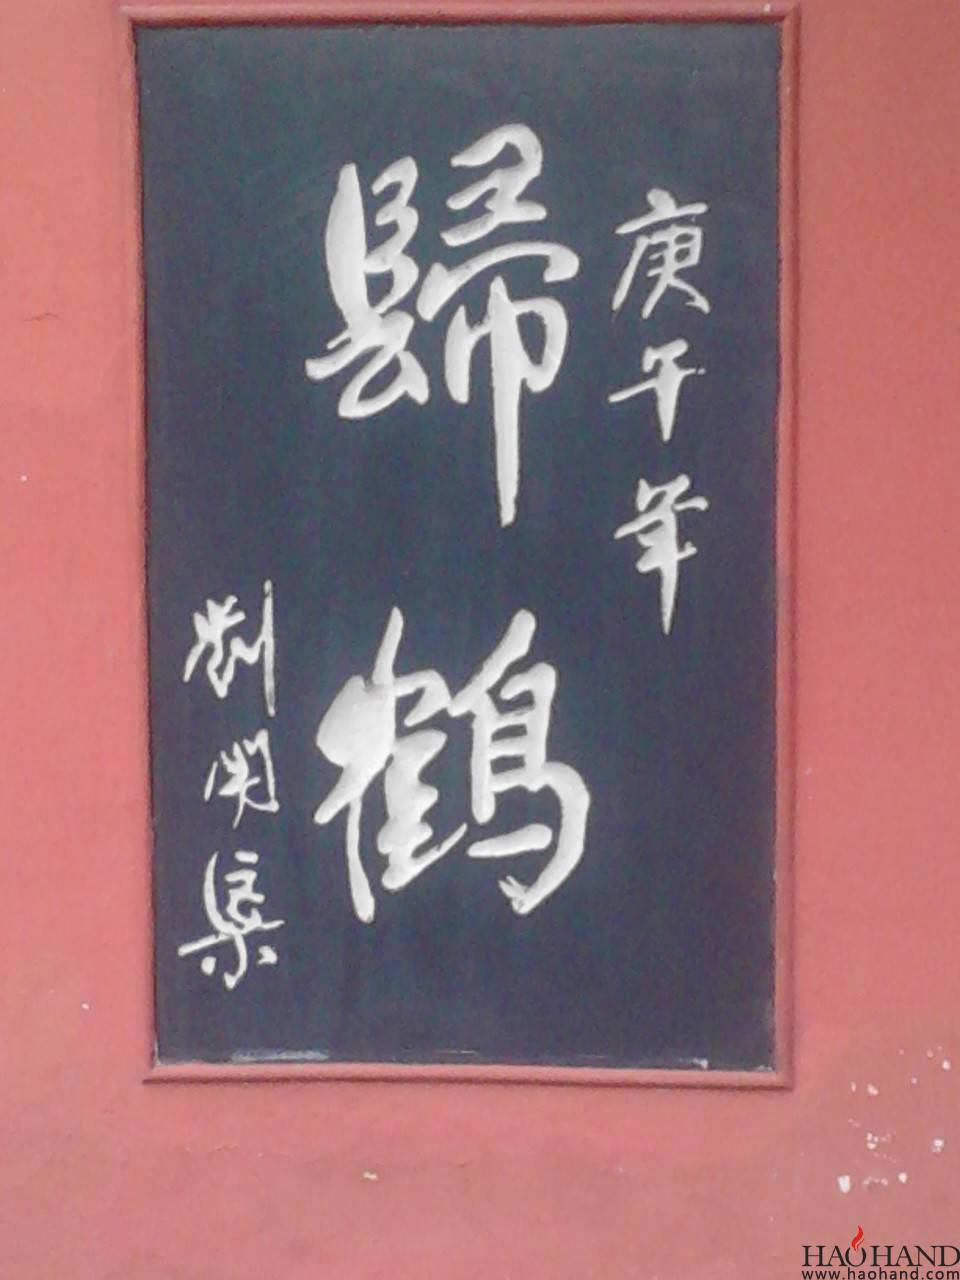 庚午年
歸鶴
刘関渠
HAOHAND
www.haohand.com